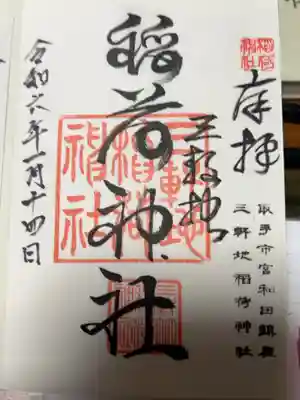 奉拝
取手市宮和田鎮座
三軒地稲荷神社
三軒地
稲荷神社
令和六年一月十四日
三軒地
稲荷
神社